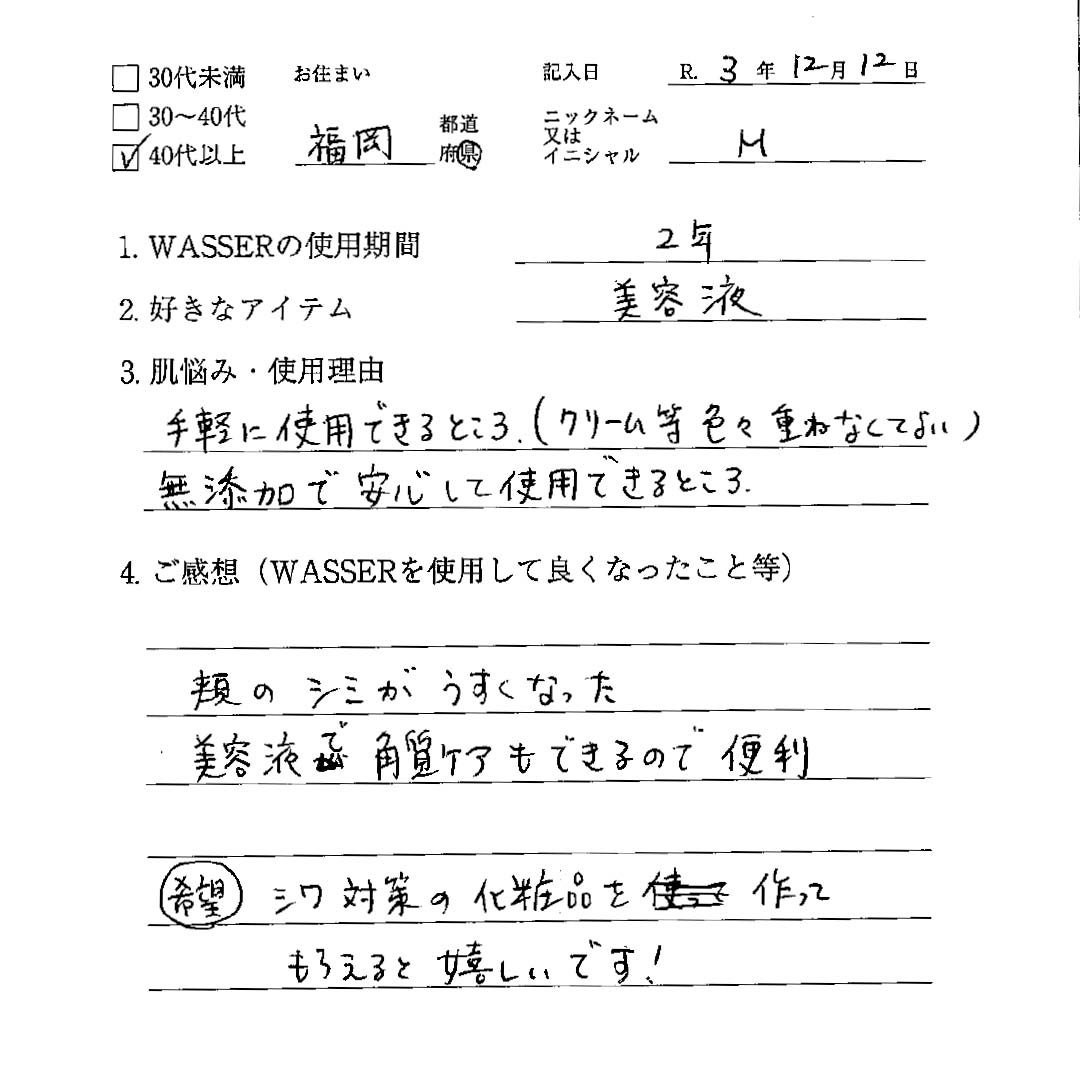 30代未満 お住まい 記入日 R. 3 年 12 月 12 日
30〜40代
40代以上 福岡 都道府県 ニックネーム又はイニシャル M
1. WASSERの使用期間 2年
2. 好きなアイテム 美容液
3. 肌悩み・使用理由
手軽に使用できるところ.(クリーム等色々重ねなくてよい)
無添加で安心して使用できるところ.
4. ご感想（WASSERを使用して良くなったこと等）
頬のシミがうすくなった
美容液で角質ケアもできるので便利
希望 シワ対策の化粧品を作って
もらえると嬉しいです!